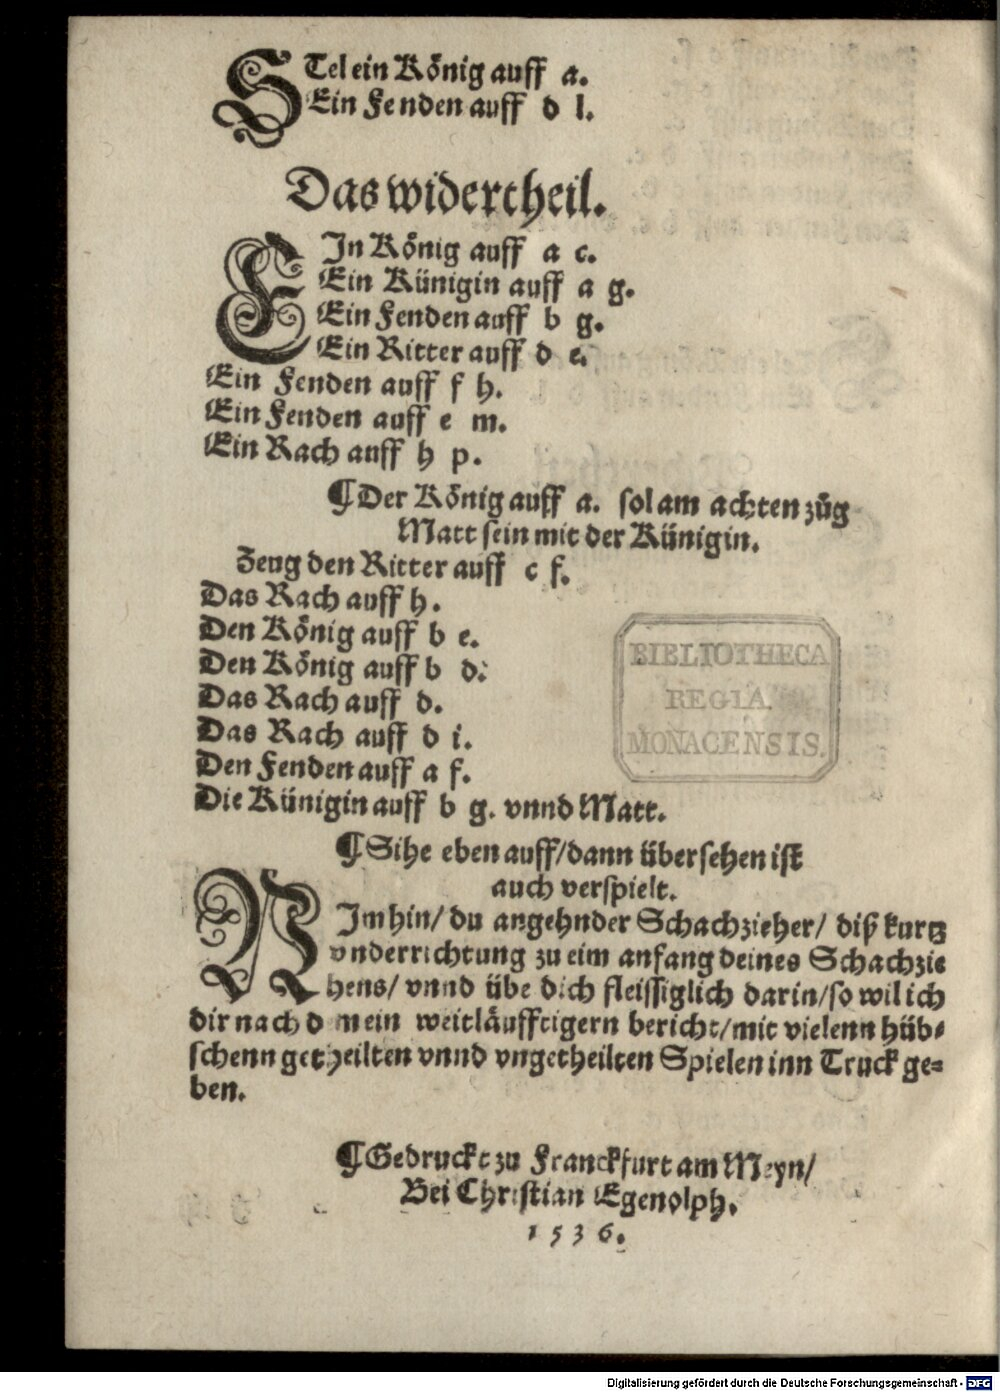 STel ein König auff a.
Ein Fenden auff d l.
Das widertheil.
EJn König auff a c.
Ein Künigin auff a g.
Ein Fenden auff b g.
Ein Ritter auff d e.
Ein Fenden auff f h.
Ein Fenden auff e m.
Ein Rach auff h p.
¶Der König auff a. sol am achten zůg
Matt sein mit der Künigin.
Zeug den Ritter auff c f.
Das Rach auff h.
Den König auff b e.
Den König auff b d.
Das Rach auff d.
Das Rach auff d i.
Den Fenden auff a f.
Die Künigin auff b g. vnnd Matt.
¶Sihe eben auff/dann übersehen ist
auch verspielt.
NJm hin/ du angehnder Schachzieher/ diß kurtz
vnderrichtung zu eim anfang deines Schachzie
hens/ vnnd übe dich fleissiglich darin/so wil ich
dir nach mein weitläufftigern bericht/mit vielenn hüb⸗
schenn getheilten vnnd vngetheilten Spielen inn Truck ge⸗
ben.
¶Gedruckt zu Franckfurt am Meyn/
Bei Christian Egenolph.
1536.
BIBLIOTHECA
REGIA.
MONACENSIS.
Digitalisierung gefördert durch die Deutsche Forschungsgemeinschaft - DFG